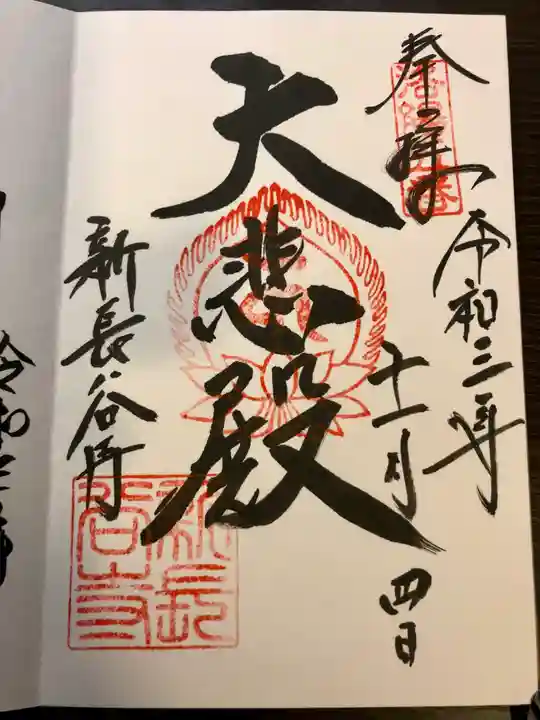 奉拝
令和三年
十一月
四日
大悲殿
新長谷寺
新長
谷寺